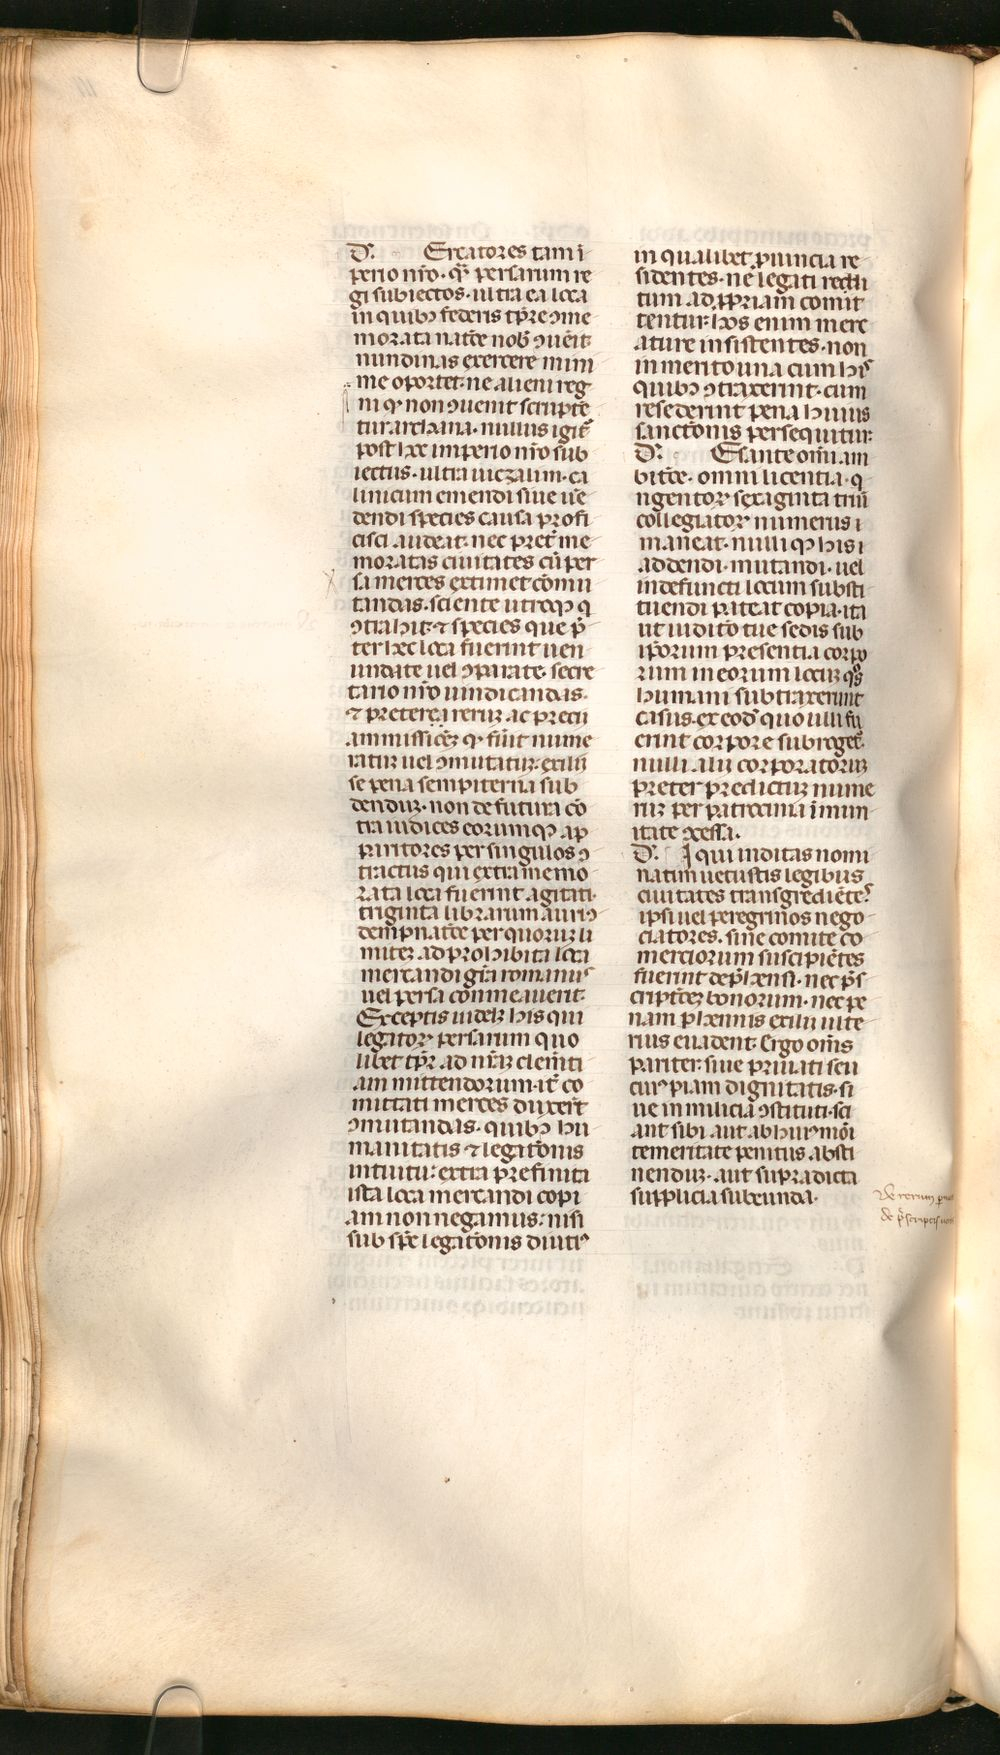 D. Ercatores tam i
perio nr̄o. qͣ persarum re
gi subiectos. ultra ea loca
in quibꝫ federis tp̄re ꝯme
morata natōe nob̄ ꝯuēit
nundinas exercere mini
me oportet. ne alieni reg
ni qͥ non ꝯuenit scripte
tur archana. nullus igit̄
post hec imperio nr̄o sub
iectus. ultra niczalim. ca
linicum emendi siue uē
dendi species causa profi
cisci audeat. nec pret̄ me
moratas ciuitates cū per
sa merces extimet cōmu
tandas. sciente utroqꝫ q
ꝯtrahit. ⁊ species que p̄
ter hec loca fuerint uen
undate uel ꝯparate. secre
tario nr̄o uindicandas.
⁊ preterea rerum ac precii
ammissionē qͥ fūit nume
ratum uel ꝯmutatum. exilii
se pena sempiterna sub
dendum. non de futura cō
tra iudices eorumqꝫ ap
paritores per singulos ꝯ
tractus qui extra memo
rata loca fuerint agitati.
triginta librarum auri ꝯ
dempnatōe per quorum li
mitem ad prohibita loca
mercandi gr̄a romanus
uel persa commeauerit.
Exceptis uidelꝫ his qui
legatoꝝ persarum quo
libet tp̄r ad nr̄am clem̄ti
am mittendorum. it̄ co
mittati merces duxer̄t
ꝯmutandas. quibꝫ hu
manitatis ⁊ legatōnis
intuitu: extra prefinita
ista loca mercandi copi
am non negamus: nisi
sub spē legatōnis diutiꝰ
in qualibet prouincia re
sidentes. nē legati redi
tum ad ꝓpriam comit
tentur: hos enim merc
ature insistentes. non
inmerito una cum his
quibꝫ ꝯtraxerint. cum
resederint pena huius
sanctōnis persequitur:
D. Esante om̄i am
bitōe. omni licentia. q
ngentoꝝ sexaginta triū
collegiatoꝝ numerus i
maneat. nulliqꝫ his i
addendi. mutandi. uel
indefuncti locum substi
tuendi pateat copia. ita
ut iuditō tue sedis sub
ip̄orum presentia corpo
rum in eorum locum qͦs
humani subtraxerunt
casus. ex eod̄ quo illi fu
erint corpore subroget̄.
nulli alii corporatorum
preter predictum nume
rum per patrocinia ī mun
itate ꝯcessa.
D. I qui inditas nomi
natim uetustis legibus
ciuitates transgrediētes
ipsi uel peregrinos nego
ciatores. sine comite co
merciorum suscipiētes
fuerint dep̄hensi. nec p̄s
criptōem bonorum. nec pe
nam p̄hennis exilii ulte
rius euadent. Ergo om̄s
pariter. siue priuati seu
cuiꝰpiam dignitatis. si
ue in milicia ꝯstituti. sci
ant sibi aut ab huiꝰmōi
temeritate penitus absti
nendum. aut supradicta
supplicia subeunda.